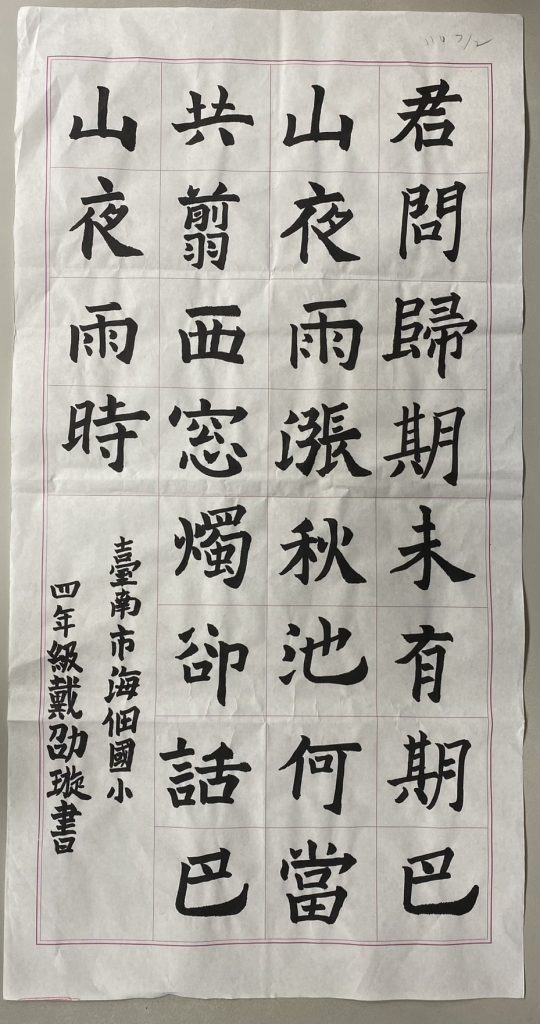 君問歸期未有期巴
山夜雨漲秋池何當
共翦西窓燭卻話巴
山夜雨時
臺南市海佃國小
四年級戴劭璇書